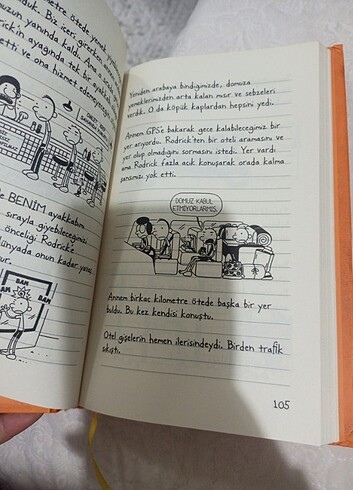 metre ötede yemek
duk. Biz içeri girerken
muzun yanında kaldı. Ama
rick'in ayağında tek bir ayakkabı
etti ve ona hizmet edemeyeceğini
BENİM ayakkabım
sırayla giyebileceğimizi
önceliği Rodrick'e
dünyada onun kadar yavaş
BAM
BAM
BAM
Yeniden arabaya bindiğimizde, domuza
yemeklerimizden arta kalan mısır ve sebzeleri
verdik. O da köpük kaplardan hepsini yedi.
Annem GPS'e bakarak gece kalabileceğimiz bir
yer arıyordu. Rodrick'ten bir oteli aramasını ve
yer olup olmadığını sormasını istedi. Yer vardı
ama Rodrick fazla açık konuşarak orada kalma
şansımızı yok etti.
DOMUZ KABUL
ETMİYORLARMIŞ.
Annem birkaç kilometre ötede başka bir yer
buldu. Bu kez kendisi konuştu.
Otel gişelerin hemen ilerisindeydi. Birden trafik
sıkıştı.
105